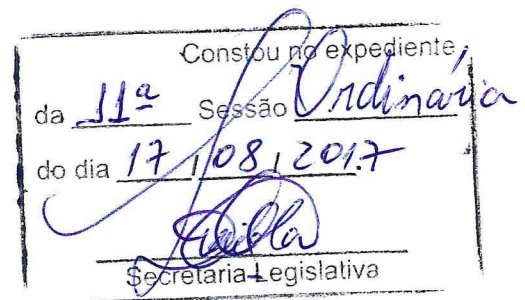 Constou no expediente
da 11ª Sessão Ordinária
do dia 17 / 08 / 2017.
Secretaria Legislativa